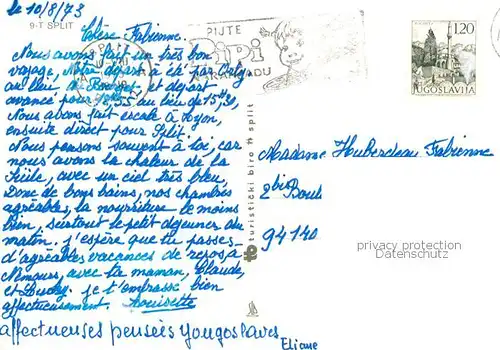 le 10/8/73
9-T SPLIT
Chère Fabienne.
Nous avons fait un très bon
voyage, Notre départ a été par Orly
au lieu du Bourget et départ
avancé pour au lieu de 15H30.
Nous avons fait escale à Lyon,
ensuite direct pour Split.
Nous pensons souvent à toi, car
nous avons la chaleur de la
Sicile, avec un ciel très bleu.
Donc de bons bains, nos chambres
agréables, la nourriture le moins
bien, surtout le petit déjeuner du
matin. J'espère que tu passes
d'agréables vacances de repos à
Nemours, avec la maman, Claude,
et je t'embrasse bien
affectueusement. Louisette
affectueuses pensées Yougoslaves
Eliane
PIJTE
PiPi
NARANČADU
turistički biro split
1.20
JUGOSLAVIJA
Madame Huberdeau Fabienne
94140
privacy protection
Datenschutz